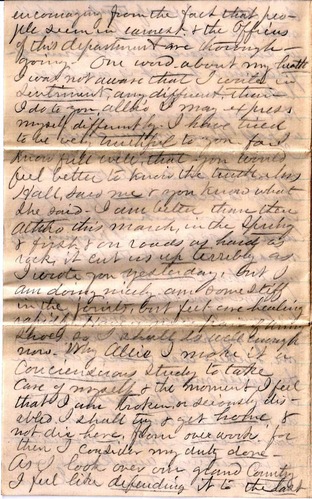 encouraging from the fact that peo-
ple seem in earnest, & the Officers
of this department are thorough-
going. One word about my health
I was not aware that I wrote in
sentiment, any different, than
I do to you, Allie I may express
myself differently I have tried
to be very truthful to you for I
know full well, that you would
feel better to know the truth
Hall, said me & you know what
She said - I am better than then
altho this march, in the Spring
& first & on roads as hard as
rock, it cut us up terribly as
I wrote you yesterday; but I
am doing nicely, am some stiff
in the joints, but feet are healing
rapidly
shoes, so I shall do well enough
now. Why Allie I make it a
Conciencious Study to take
Care of myself & the moment I feel
that I am broken, or seriously dis-
abled I shall try & get home &
not die here, from overwork, for
then I consider my duty done -
As I look over our grand Country
I feel like defending it to the last